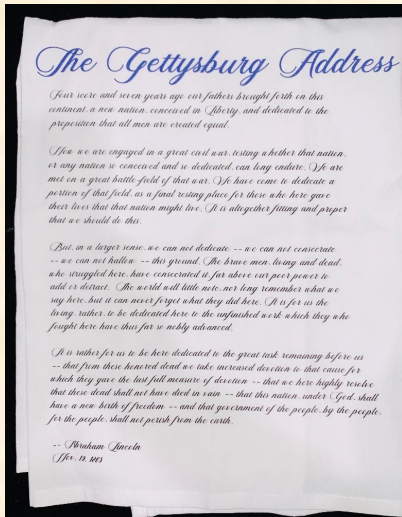 The Gettysburg Address
Four score and seven years ago our fathers brought forth on this
continent, a new nation, conceived in Liberty, and dedicated to the
proposition that all men are created equal.
Now we are engaged in a great civil war, testing whether that nation,
or any nation so conceived and so dedicated, can long endure. We are
met on a great battle-field of that war. We have come to dedicate a
portion of that field, as a final resting place for those who here gave
their lives that that nation might live. It is altogether fitting and proper
that we should do this.
But, in a larger sense, we can not dedicate -- we can not consecrate
-- we can not hallow -- this ground. The brave men, living and dead,
who struggled here, have consecrated it, far above our poor power to
add or detract. The world will little note, nor long remember what we
say here, but it can never forget what they did here. It is for us the
living, rather, to be dedicated here to the unfinished work which they who
fought here have thus far so nobly advanced.
It is rather for us to be here dedicated to the great task remaining before us
-- that from these honored dead we take increased devotion to that cause for
which they gave the last full measure of devotion -- that we here highly resolve
that these dead shall not have died in vain -- that this nation, under God, shall
have a new birth of freedom -- and that government of the people, by the people,
for the people, shall not perish from the earth.
-- Abraham Lincoln
Nov. 19, 1863